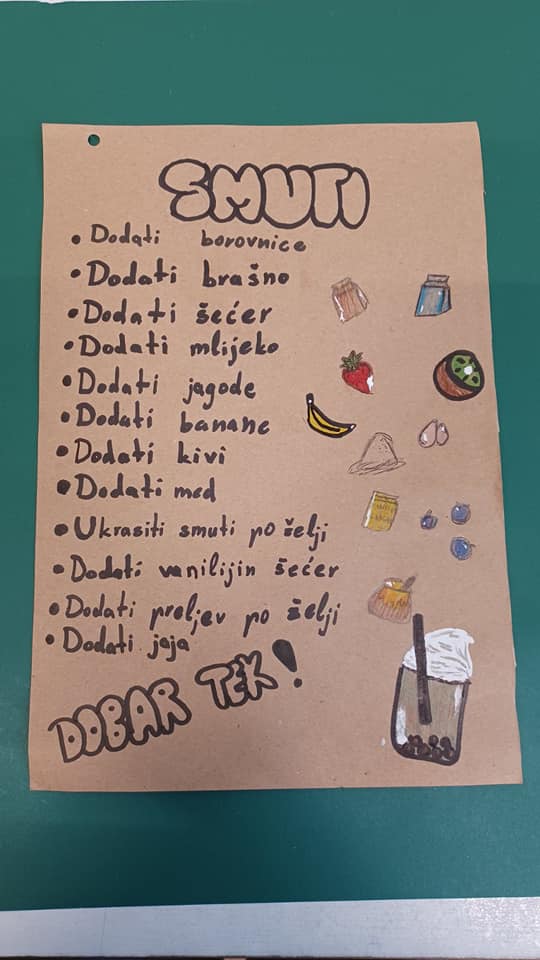 SMUTI
• Dodati borovnice
• Dodati brašno
• Dodati šećer
• Dodati mlijeko
• Dodati jagode
• Dodati banane
• Dodati kivi
• Dodati med
• Ukrasiti smuti po želji
• Dodati vanilijin šećer
• Dodati preljev po želji
• Dodati jaja
DOBAR TEK!